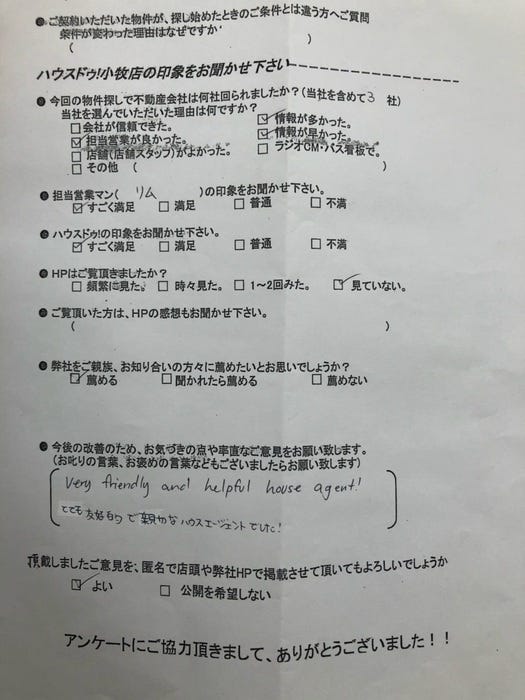 ●ご契約いただいた物件が、探し始めたときのご条件とは違う方へご質問
条件が変わった理由はなぜですか
( )
ハウスドゥ!小牧店の印象をお聞かせ下さい
●今回の物件探しで不動産会社は何社回られましたか?(当社を含めて3 社)
当社を選んでいただいた理由は何ですか?
□会社が信頼できた。 ☑情報が多かった。
☑担当営業が良かった。 ☑情報が早かった。
□店舗(店舗スタッフ)がよかった。 □ラジオCM・バス看板で。
□その他 ( )
●担当営業マン( リム )の印象をお聞かせ下さい。
☑すごく満足 □満足 □普通 □不満
●ハウスドゥ!の印象をお聞かせ下さい。
☑すごく満足 □満足 □普通 □不満
●HPはご覧頂きましたか?
□頻繁に見た。 □時々見た。 □1~2回みた。 ☑見ていない。
●ご覧頂いた方は、HPの感想もお聞かせ下さい。
( )
●弊社をご親族、お知り合いの方々に薦めたいとお思いでしょうか?
☑薦める □聞かれたら薦める □薦めない
●今後の改善のため、お気づきの点や率直なご意見をお願い致します。
(お叱りの言葉、お褒めの言葉などもございましたらお願い致します)
Very friendly and helpful house agent!
とても友好的で親切なハウスエージェントでした!
頂戴しましたご意見を、匿名で店頭や弊社HPで掲載させて頂いてもよろしいでしょうか
☑よい □公開を希望しない
アンケートにご協力頂きまして、ありがとうございました!!